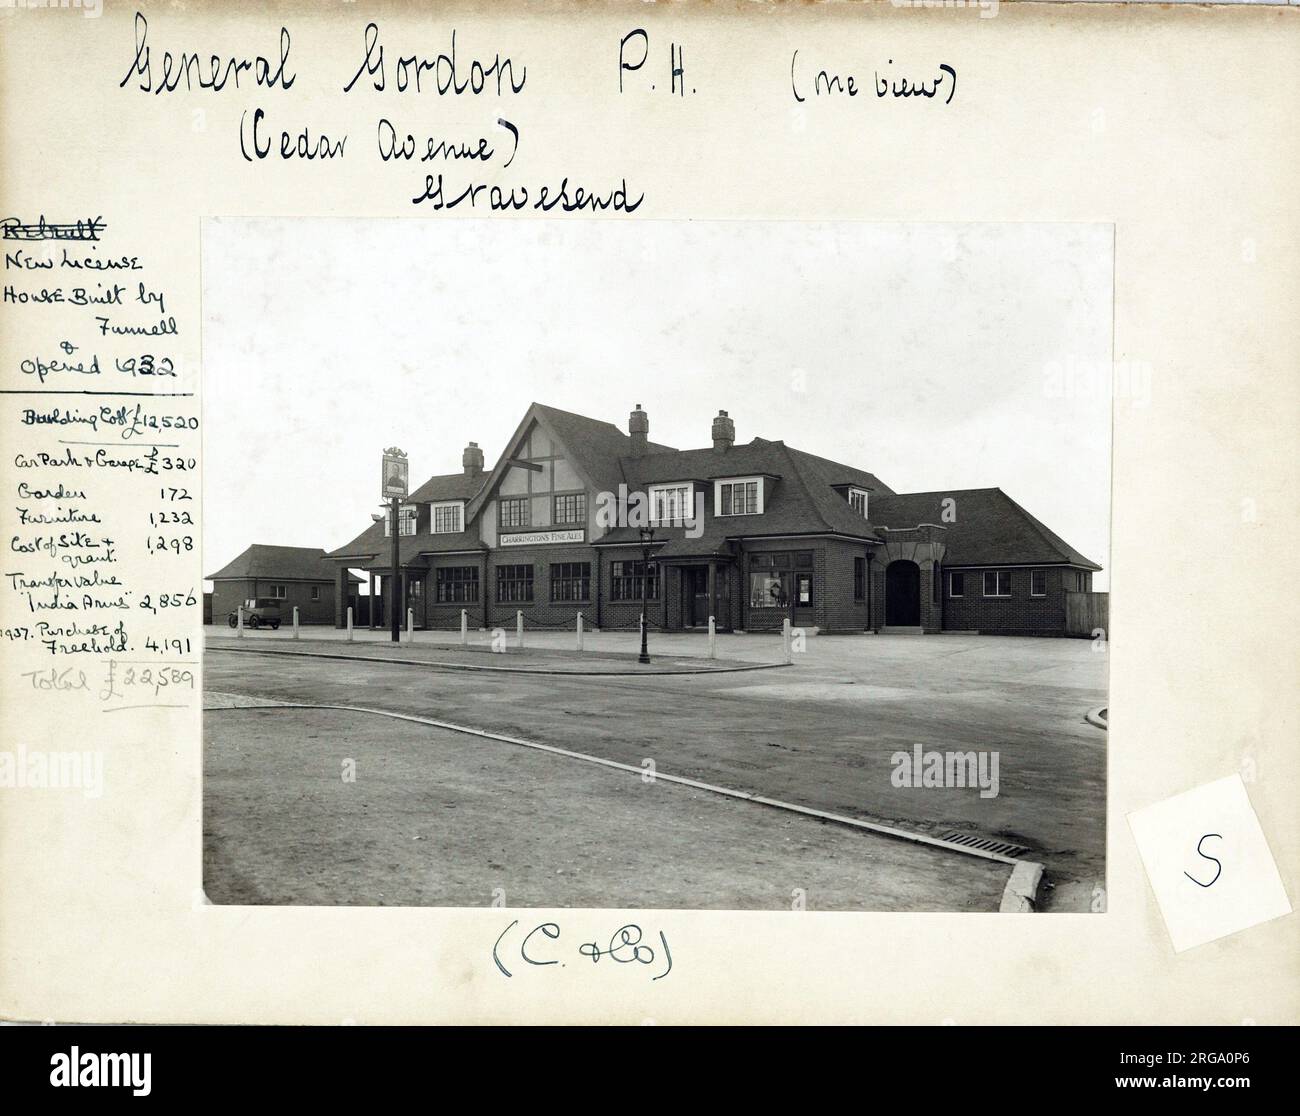 General Gordon P.H. (One View)
(Cedar Avenue)
Gravesend
Rebuilt
New License
House Built by
Funnell
&
Opened 1932
Building Cost £12,520
Car Park & Garage £ 320
Garden 172
Furniture 1,232
Cost of Site + grant. 1,298
Transfer value
"India Arms" 2,856
1937. Purchase of
Freehold. 4,191
Total £22,589
CHARRINGTON'S FINE ALES
S
(C. & Co)
alamy
Image ID: 2RGA0P6
www.alamy.com